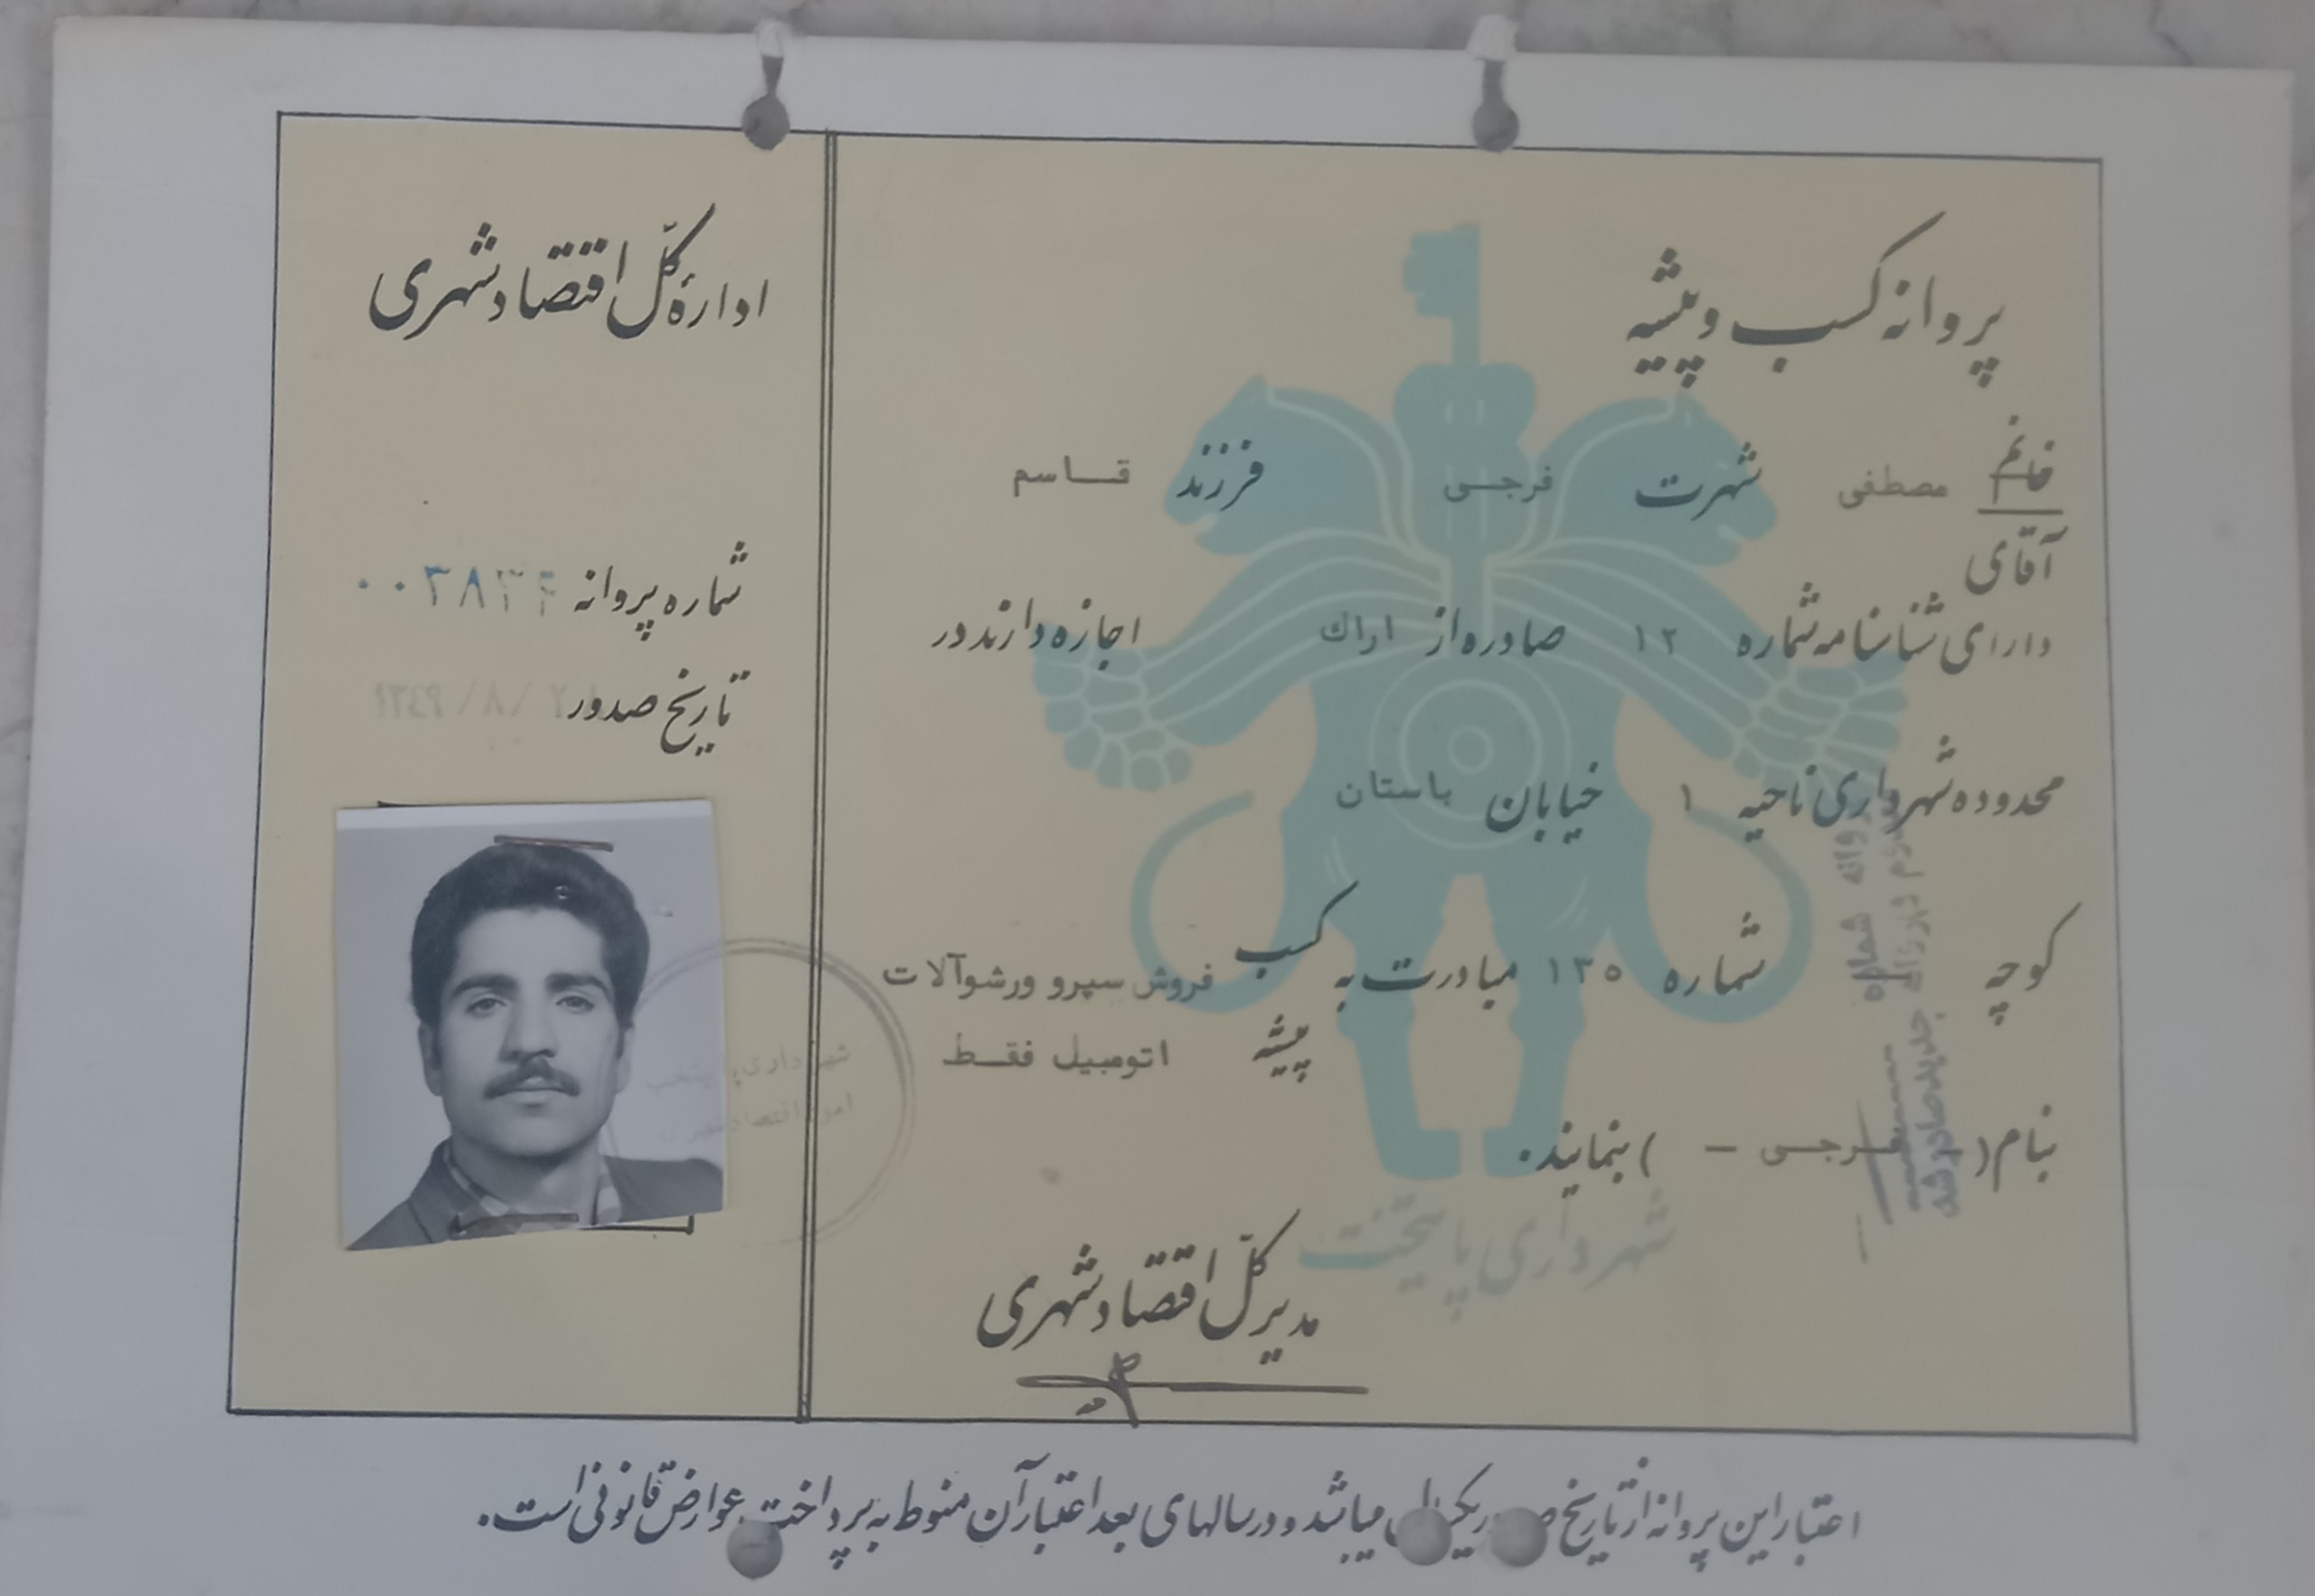 پروانه کسب و پیشه
خانم
آقای
مصطفی شهرت فرجی فرزند قاسم
دارای شناسنامه شماره ۱۲ صادره از اراك اجازه دارند در
محدوده شهرداری ناحیه ۱ خیابان باستان
کوچه شماره ۱۳۵ مبادرت به کسب فروش سپرو ورشوآلات
پیشه اتومبیل فقط
بنام ( - فرجی - ) بنمایند.
شهرداری پایتخت
مدیر کل اقتصاد شهری
پروانه شماره
جدید صادر شد
ادارهٔ کل اقتصاد شهری
شماره پروانه
تاریخ صدور
شهرداری پایتخت
امور اقتصاد شهری
اعتبار این پروانه از تاریخ صدور یکسال میباشد و در سالهای بعد اعتبار آن منوط به پرداخت عوارض قانونی است.